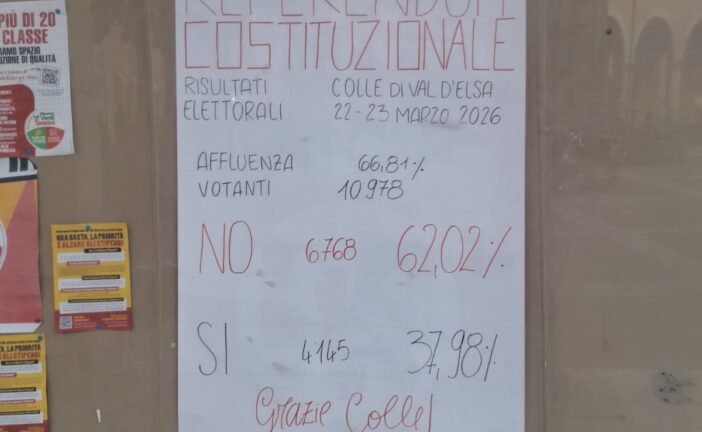 REFERENDUM
COSTITUZIONALE
RISULTATI
ELETTORALI
COLLE DI VAL D'ELSA
22-23 MARZO 2026
AFFLUENZA 66,81%
VOTANTI 10978
NO 6768 62,02%
SI 4145 37,98%
Grazie Colle!
PIÙ DI 20
CLASSE
AMO SPAZIO
ZIONE DI QUALITÀ
ORA BASTA, LA PRIORITÀ
È ALZARE GLI STIPENDI
TA, LA PRIORITÀ
E GLI STIPENDI